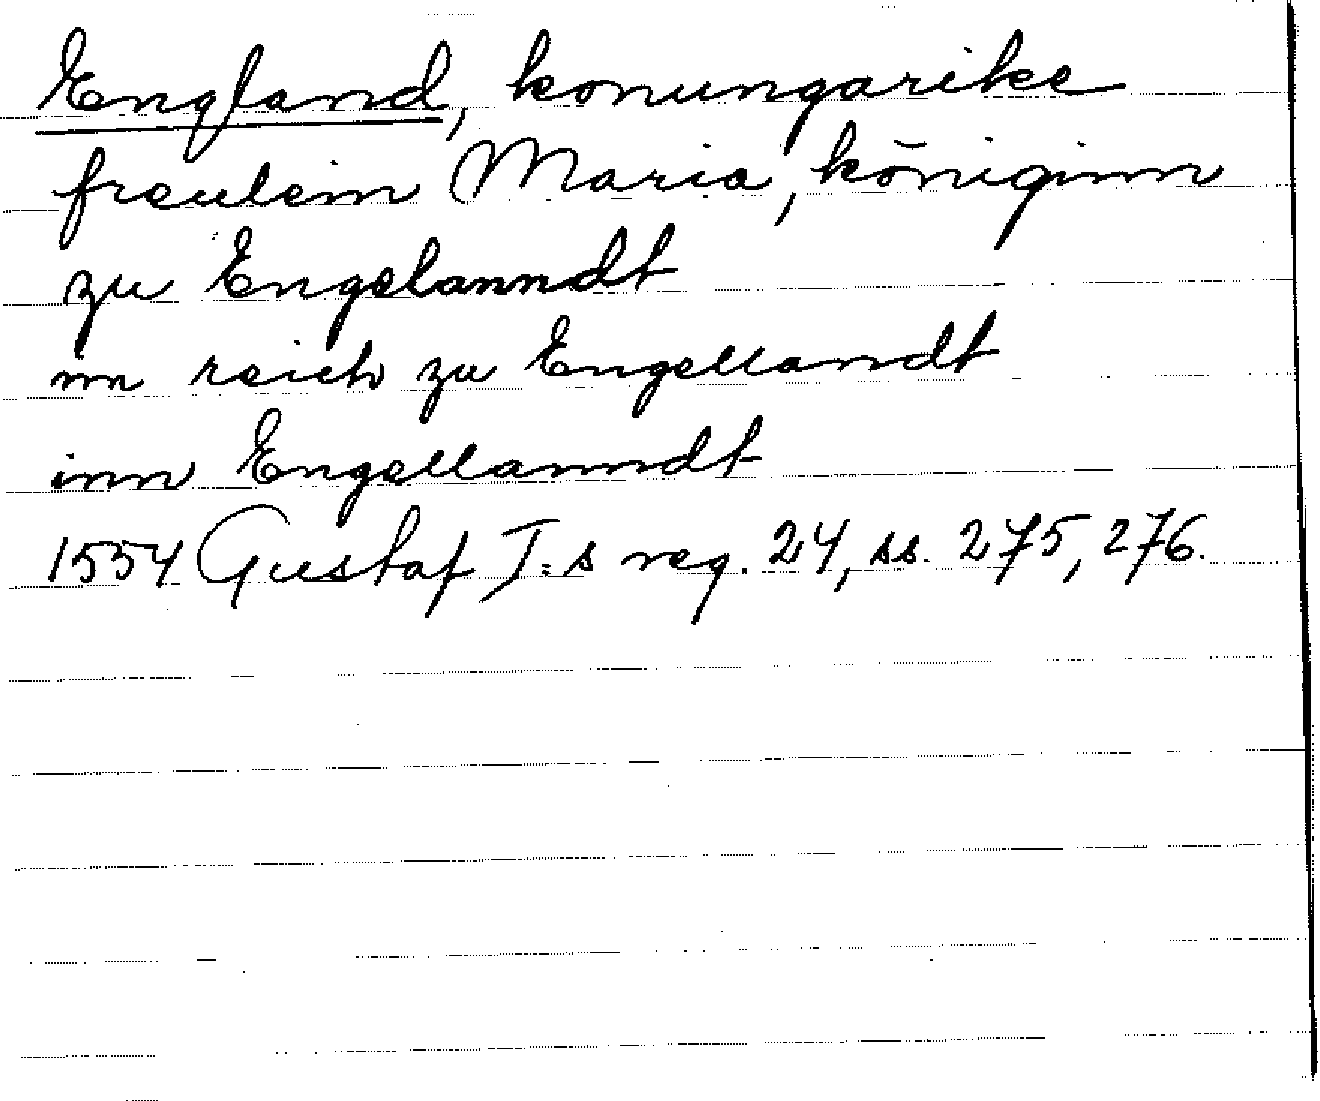 England, konungarike
freulein Maria, königinn
zu Engelanndt
im reich zu Engellandt
inn Engellanndt
1554 Gustaf I:s reg. 24, ss. 275, 276.